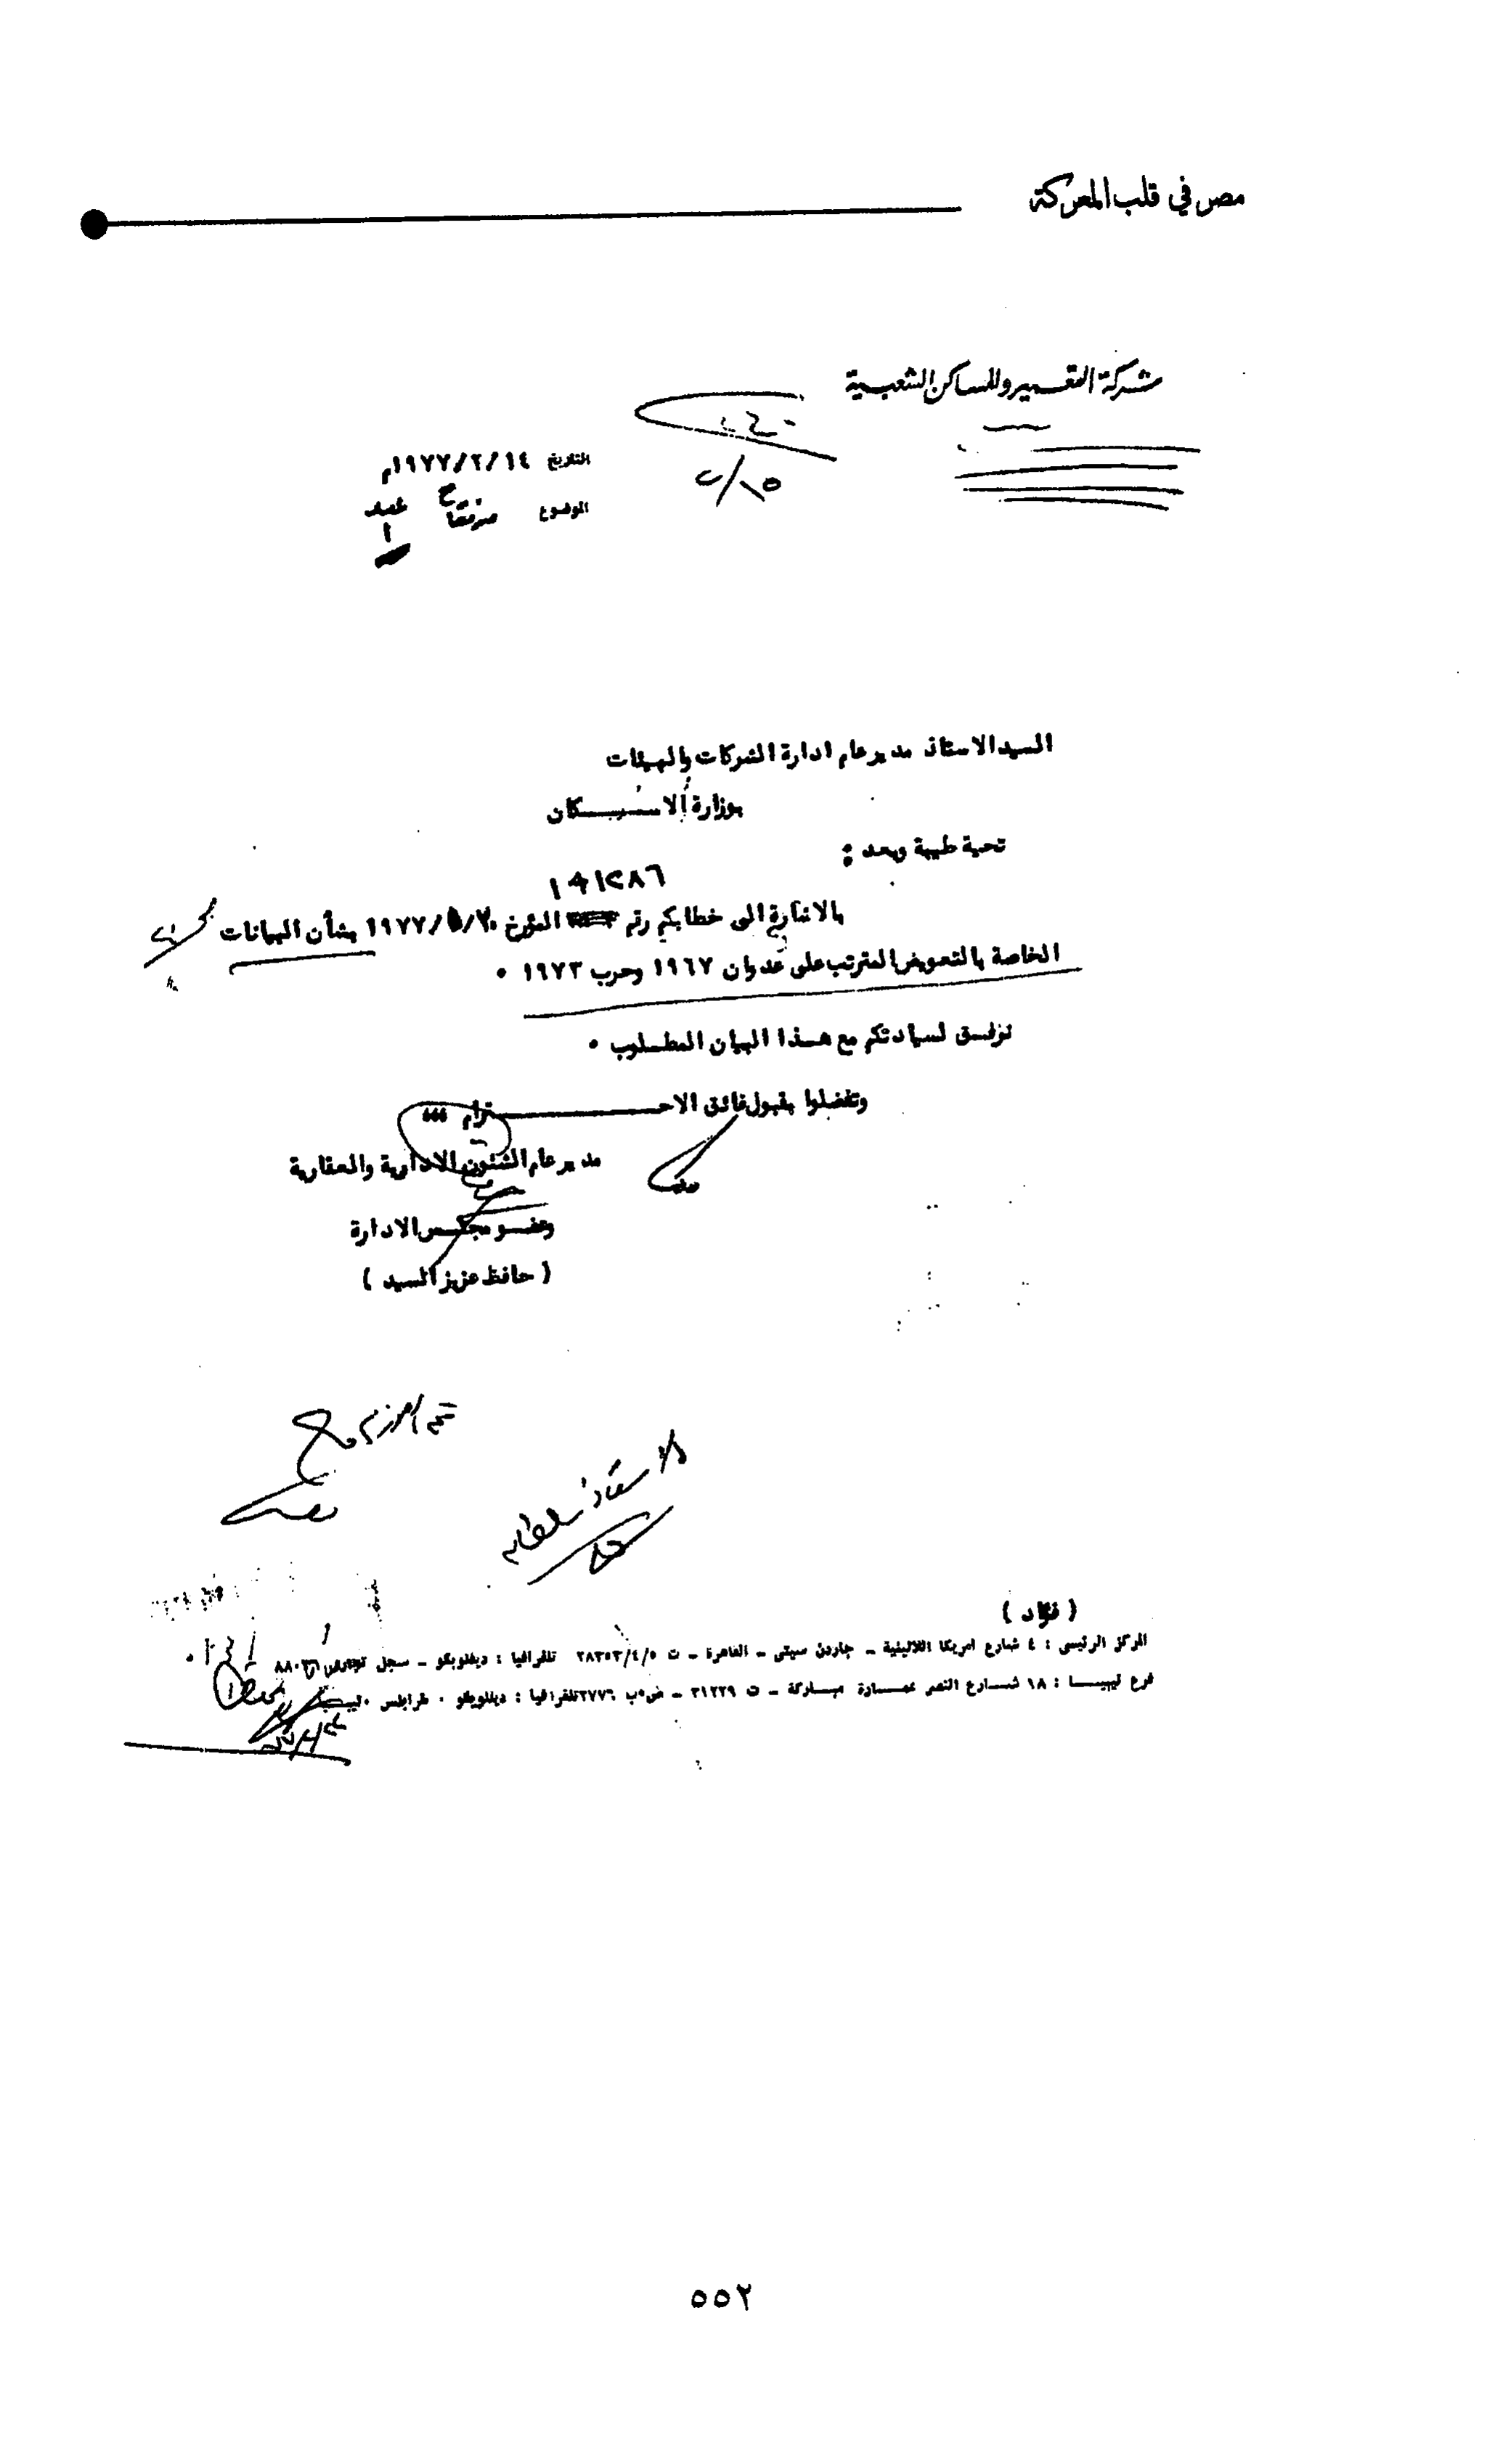 مصر في قلب المعركة
شركة التعمير والمساكن الشعبية
التاريخ ١٩٧٧/٢/١٤م
الموضوع مرفقات عدد
١
٢/١٥
السيد الاستاذ مدير عام ادارة الشركات والهيئات
بوزارة الاسكان
تحية طيبة وبعد :
بالاشارة الى خطابكم رقم المؤرخ ١٩٧٧/ بشأن البيانات
الخاصة بالتعويض المترتب على عدوان ١٩٦٧ وحرب ١٩٧٣ ٠
نرفق لسيادتكم مع هذا البيان المطلوب ٠
وتفضلوا بقبول فائق الاحترام ،،،
مدير عام الشئون الادارية والعقارية
وعضو مجلس الادارة
( حافظ عزيز السيد )
( فؤاد )
المركز الرئيسى : ٤ شارع امريكا اللاتينية ـ جاردن سيتى ـ القاهرة ـ ت ٢٨٣٥٣/٤/٥ تلغرافيا : ديفلوبكو ـ سجل تجارى
فرع ليبيا : ١٨ شارع النصر عمارة مباركة ـ ت ٣١٢٢٩ ـ ص٠ب ٢٧٧٦ تلغرافيا : ديفلوبكو ٠ طرابلس ليبيا
٥٥٢